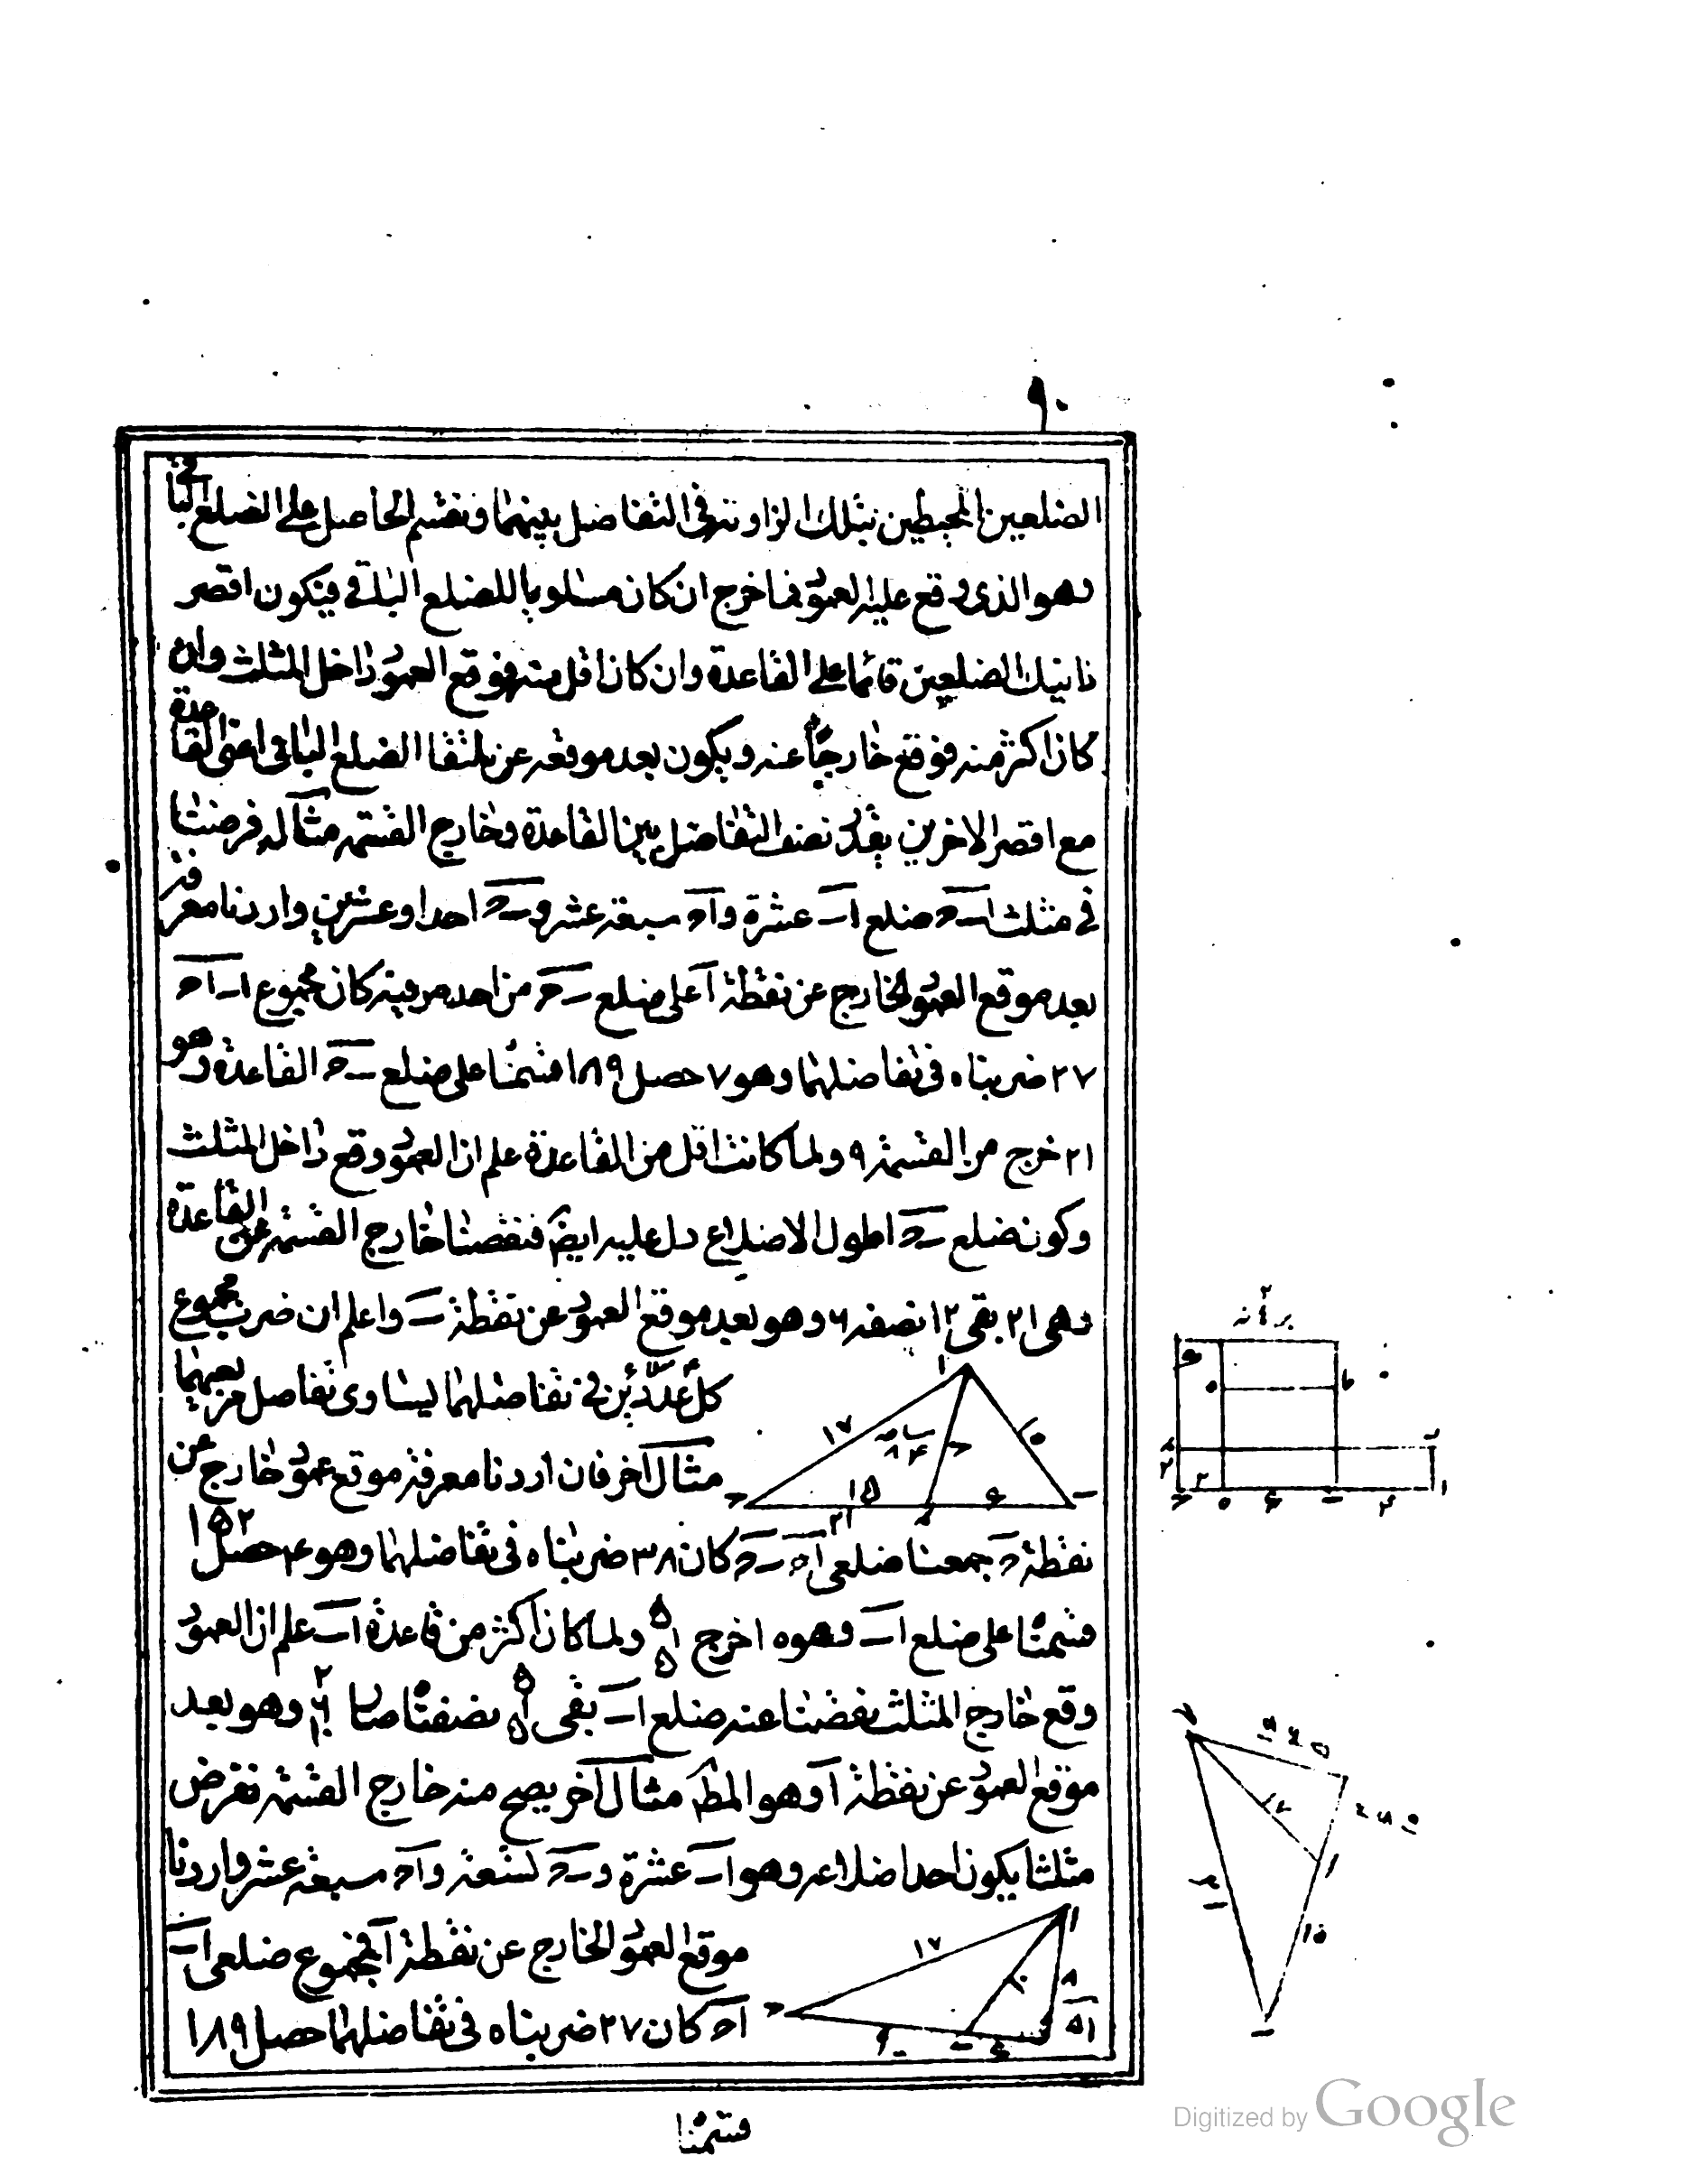 ٩٠
الضلعين المحيطين بتلك الزاوية فى التفاضل بينهما ونقسم الحاصل على الضلع الباقى
وهو الذى وقع عليه العمود فما خرج ان كان مساويا للضلع الباقى فيكون اقصر
ذانيك الضلعين قائما على القاعدة وان كان اقل منه فوقع العمود داخل المثلث وان
كان اكثر منه فوقع خارجا عنه ويكون بعد موقعه عن ملتقا الضلع الباقى اعنى القاعدة
مع اقصر الاخرين بقدر نصف التفاضل بين القاعدة وخارج القسمة مثاله فرضنا
فى مثلث ا ب ح ضلع ا ب عشرة و ا ح سبعة عشر و ب ح احدا وعشرين واردنا معرفة
بعد موقع العمود الخارج عن نقطة ا على ضلع ب ح من احد طرفيه كان مجموع ا ب ا ح
٢٧ ضربناه فى تفاضلهما وهو ٧ حصل ١٨٩ قسمنا على ضلع ب ح القاعدة وهو
٢١ خرج من القسمة ٩ ولما كانت اقل من القاعدة علم ان العمود وقع داخل المثلث
وكون ضلع ب ح اطول الاضلاع دل عليه ايضا فنقصنا خارج القسمة عن القاعدة
وهى ٢١ بقى ١٢ نصفه ٦ وهو بعد موقع العمود عن نقطة ب واعلم ان ضرب مجموع
كل عددين فى تفاضلهما يساوى تفاضل مربعيهما
مثال آخر فان اردنا معرفة موقع عمود خارج عن
نقطة ح جمعنا ضلعى ا ح ب ح كان ٣٨ ضربناه فى تفاضلهما وهو ٤ حصل ١٥٢
قسمنا على ضلع ا ب وهو ١٠ خرج ولما كان اكثر من قاعدة ا ب علم ان العمود
وقع خارج المثلث نقصنا عنه ضلع ا ب بقى نصفنا صار وهو بعد
موقع العمود عن نقطة ا وهو المط مثال آخر يصح منه خارج القسمة نفرض
مثلثا يكون احد اضلاعه وهو ا ب عشرة و ب ح تسعة و ا ح سبعة عشر واردنا
موقع العمود الخارج عن نقطة ا فمجموع ضلعى ا ب
ا ح كان ٢٧ ضربناه فى تفاضلهما حصل ١٨٩
قسمنا
١٧
١٥
٦
٢١
١٧
٨
٦
Digitized by Google